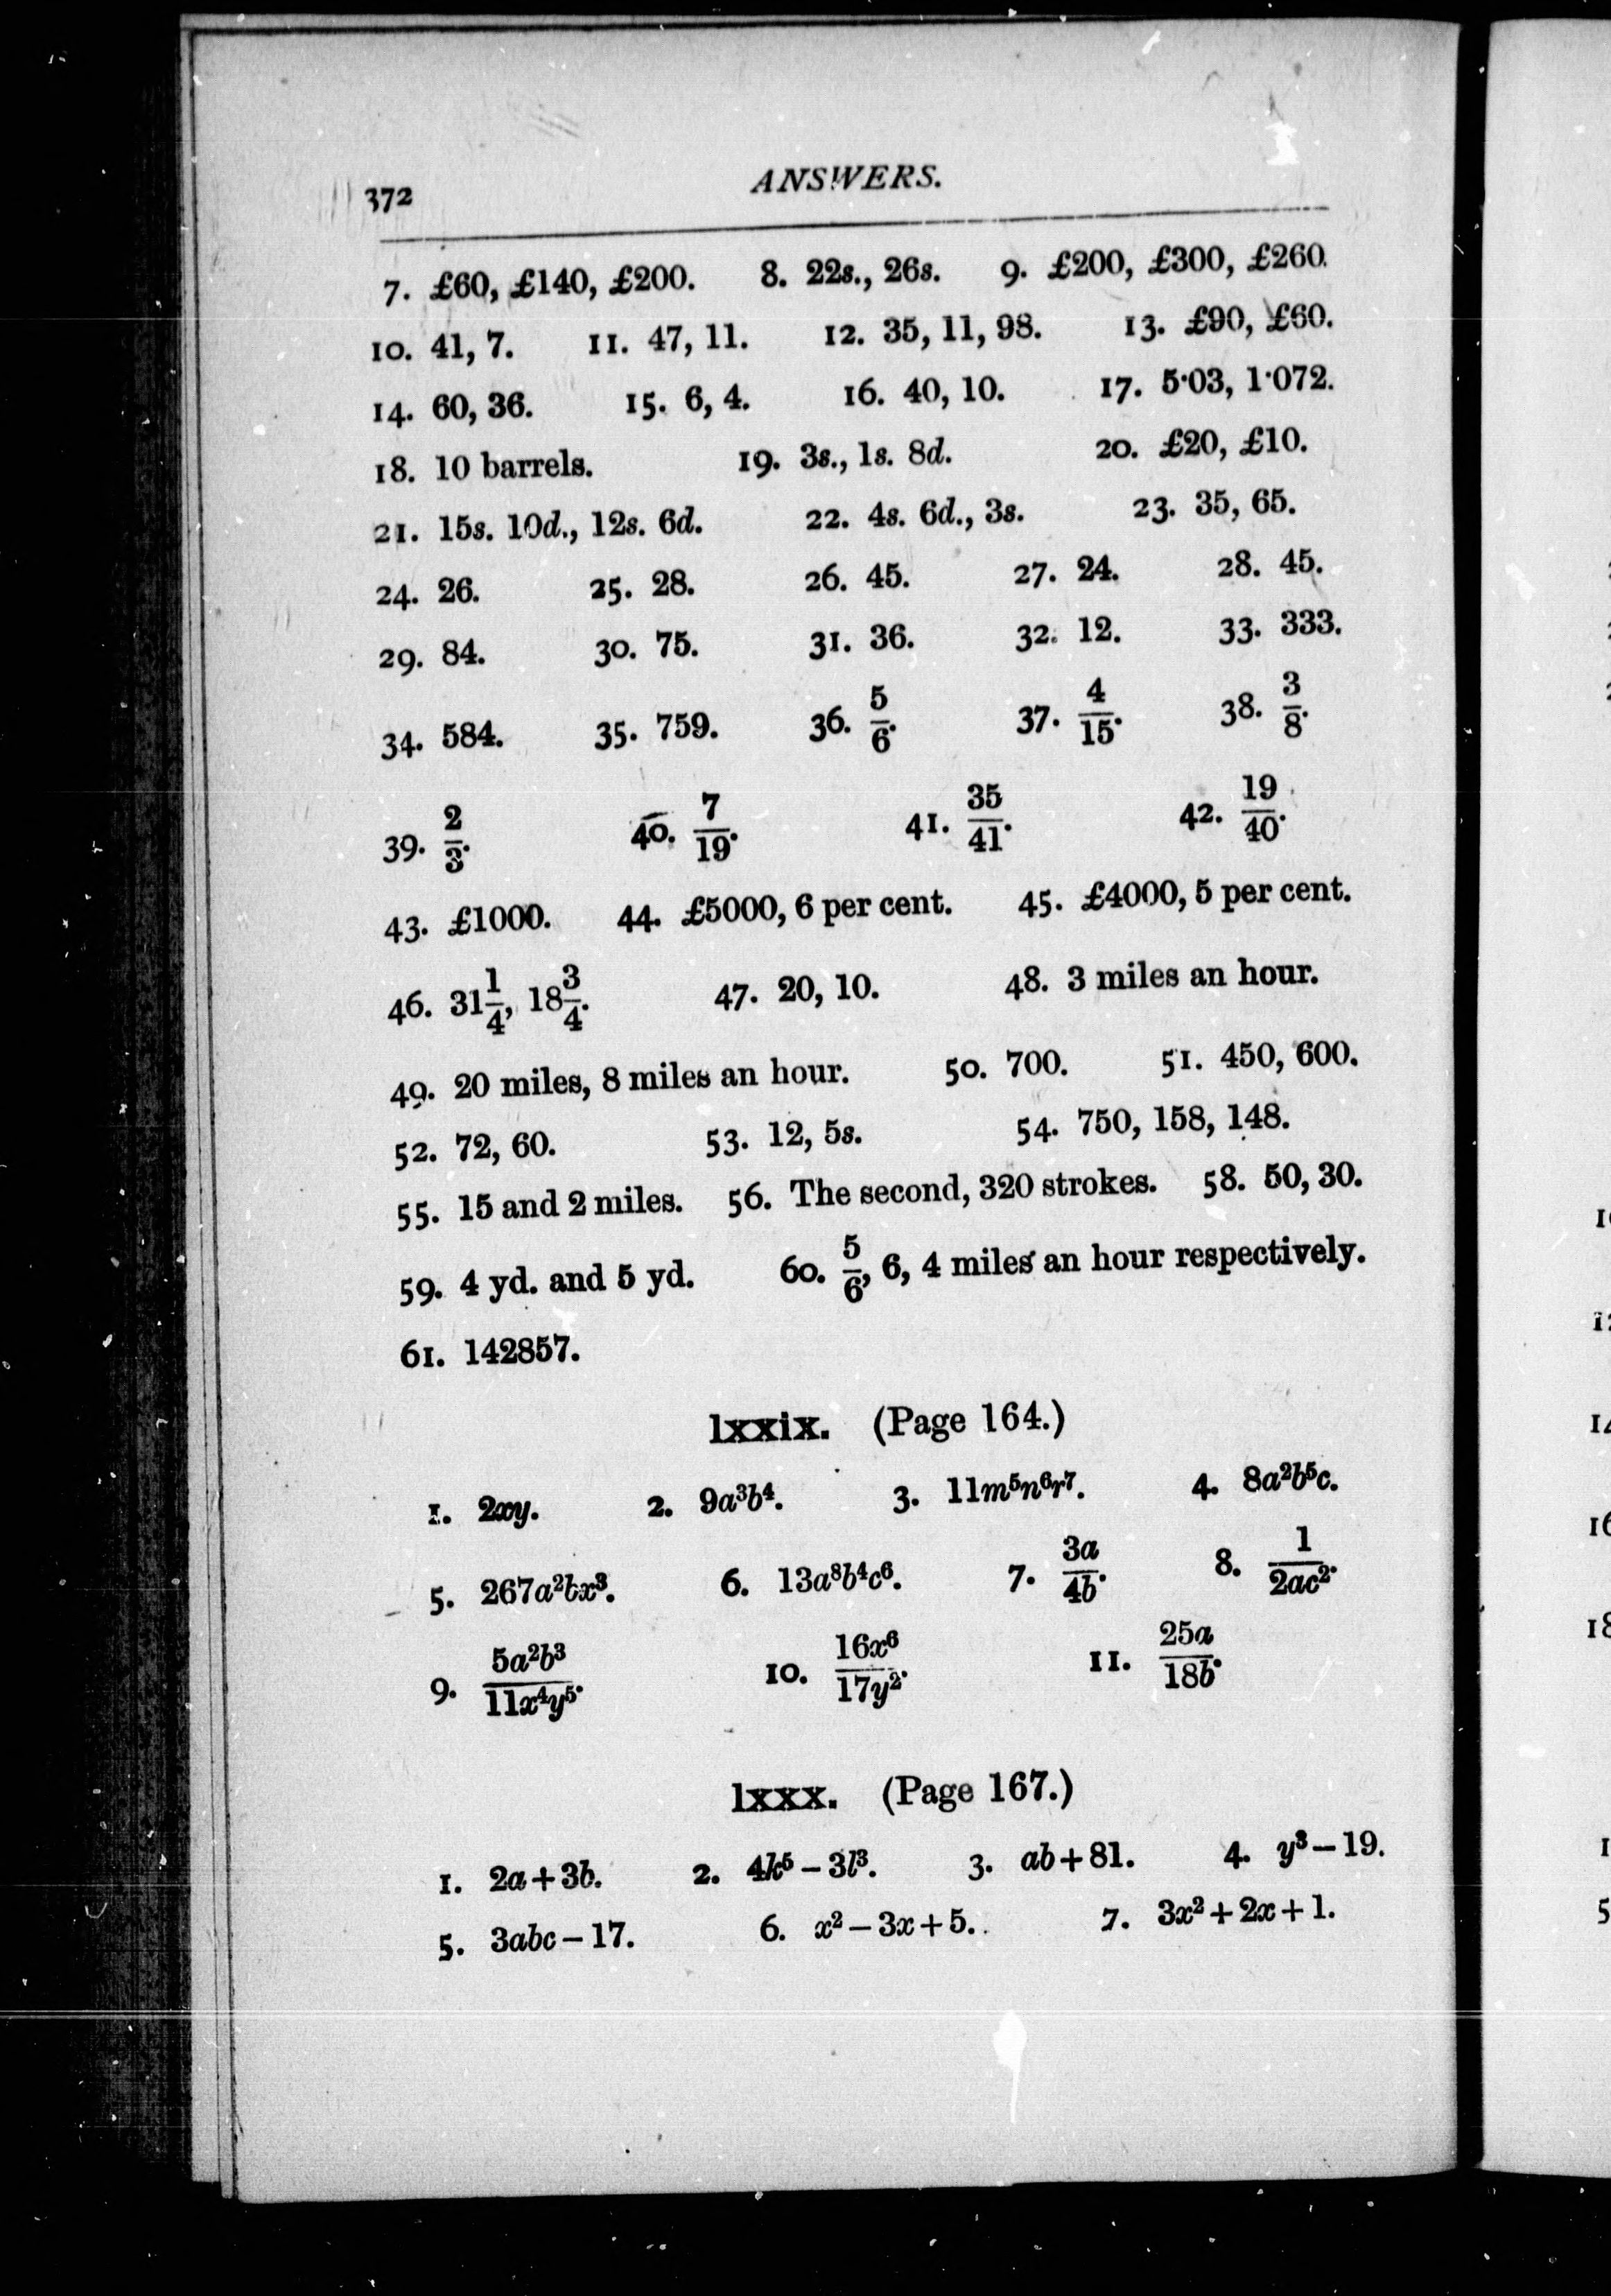 372
ANSWERS.
7. £60, £140, £200. 8. 22s., 26s. 9. £200, £300, £260.
10. 41, 7. 11. 47, 11. 12. 35, 11, 98. 13. £90, £60.
14. 60, 36. 15. 6, 4. 16. 40, 10. 17. 5·03, 1·072.
18. 10 barrels. 19. 3s., 1s. 8d. 20. £20, £10.
21. 15s. 10d., 12s. 6d. 22. 4s. 6d., 3s. 23. 35, 65.
24. 26. 25. 28. 26. 45. 27. 24. 28. 45.
29. 84. 30. 75. 31. 36. 32. 12. 33. 333.
34. 584. 35. 759. 36. 5/6. 37. 4/15. 38. 3/8.
39. 2/3. 40. 7/19. 41. 35/41. 42. 19/40.
43. £1000. 44. £5000, 6 per cent. 45. £4000, 5 per cent.
46. 31 1/4, 18 3/4. 47. 20, 10. 48. 3 miles an hour.
49. 20 miles, 8 miles an hour. 50. 700. 51. 450, 600.
52. 72, 60. 53. 12, 5s. 54. 750, 158, 148.
55. 15 and 2 miles. 56. The second, 320 strokes. 58. 50, 30.
59. 4 yd. and 5 yd. 60. 5/6, 6, 4 miles an hour respectively.
61. 142857.
lxxix. (Page 164.)
1. 2xy. 2. 9a³b⁴. 3. 11m⁵n⁶r⁷. 4. 8a²b⁵c.
5. 267a²bx³. 6. 13a⁸b⁴c⁶. 7. 3a/4b. 8. 1/2ac².
9. 5a²b³/11x⁴y⁵. 10. 16x⁶/17y². 11. 25a/18b.
lxxx. (Page 167.)
1. 2a + 3b. 2. 4k⁵ − 3l³. 3. ab + 81. 4. y³ − 19.
5. 3abc − 17. 6. x² − 3x + 5. 7. 3x² + 2x + 1.